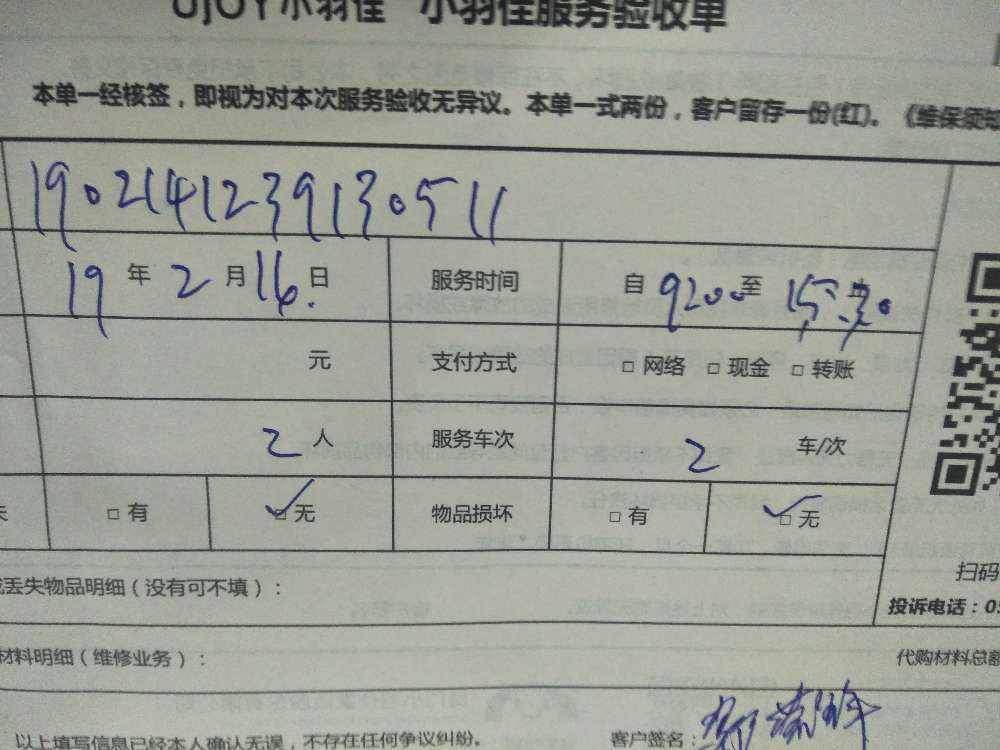 UJOY小羽佳 小羽佳服务验收单
本单一经核签，即视为对本次服务验收无异议。本单一式两份，客户留存一份(红)。《维保须知
1902141239130511
19年2月16日 服务时间 自9200至15:30
元 支付方式 □ 网络 □ 现金 □ 转账
2人 服务车次 2车/次
□ 有 ✓□ 无 物品损坏 □ 有 ✓□ 无
丢失物品明细（没有可不填）：
扫码
投诉电话：05
材料明细（维修业务）：
代购材料总额
以上填写信息已经本人确认无误，不存在任何争议纠纷。 客户签名：